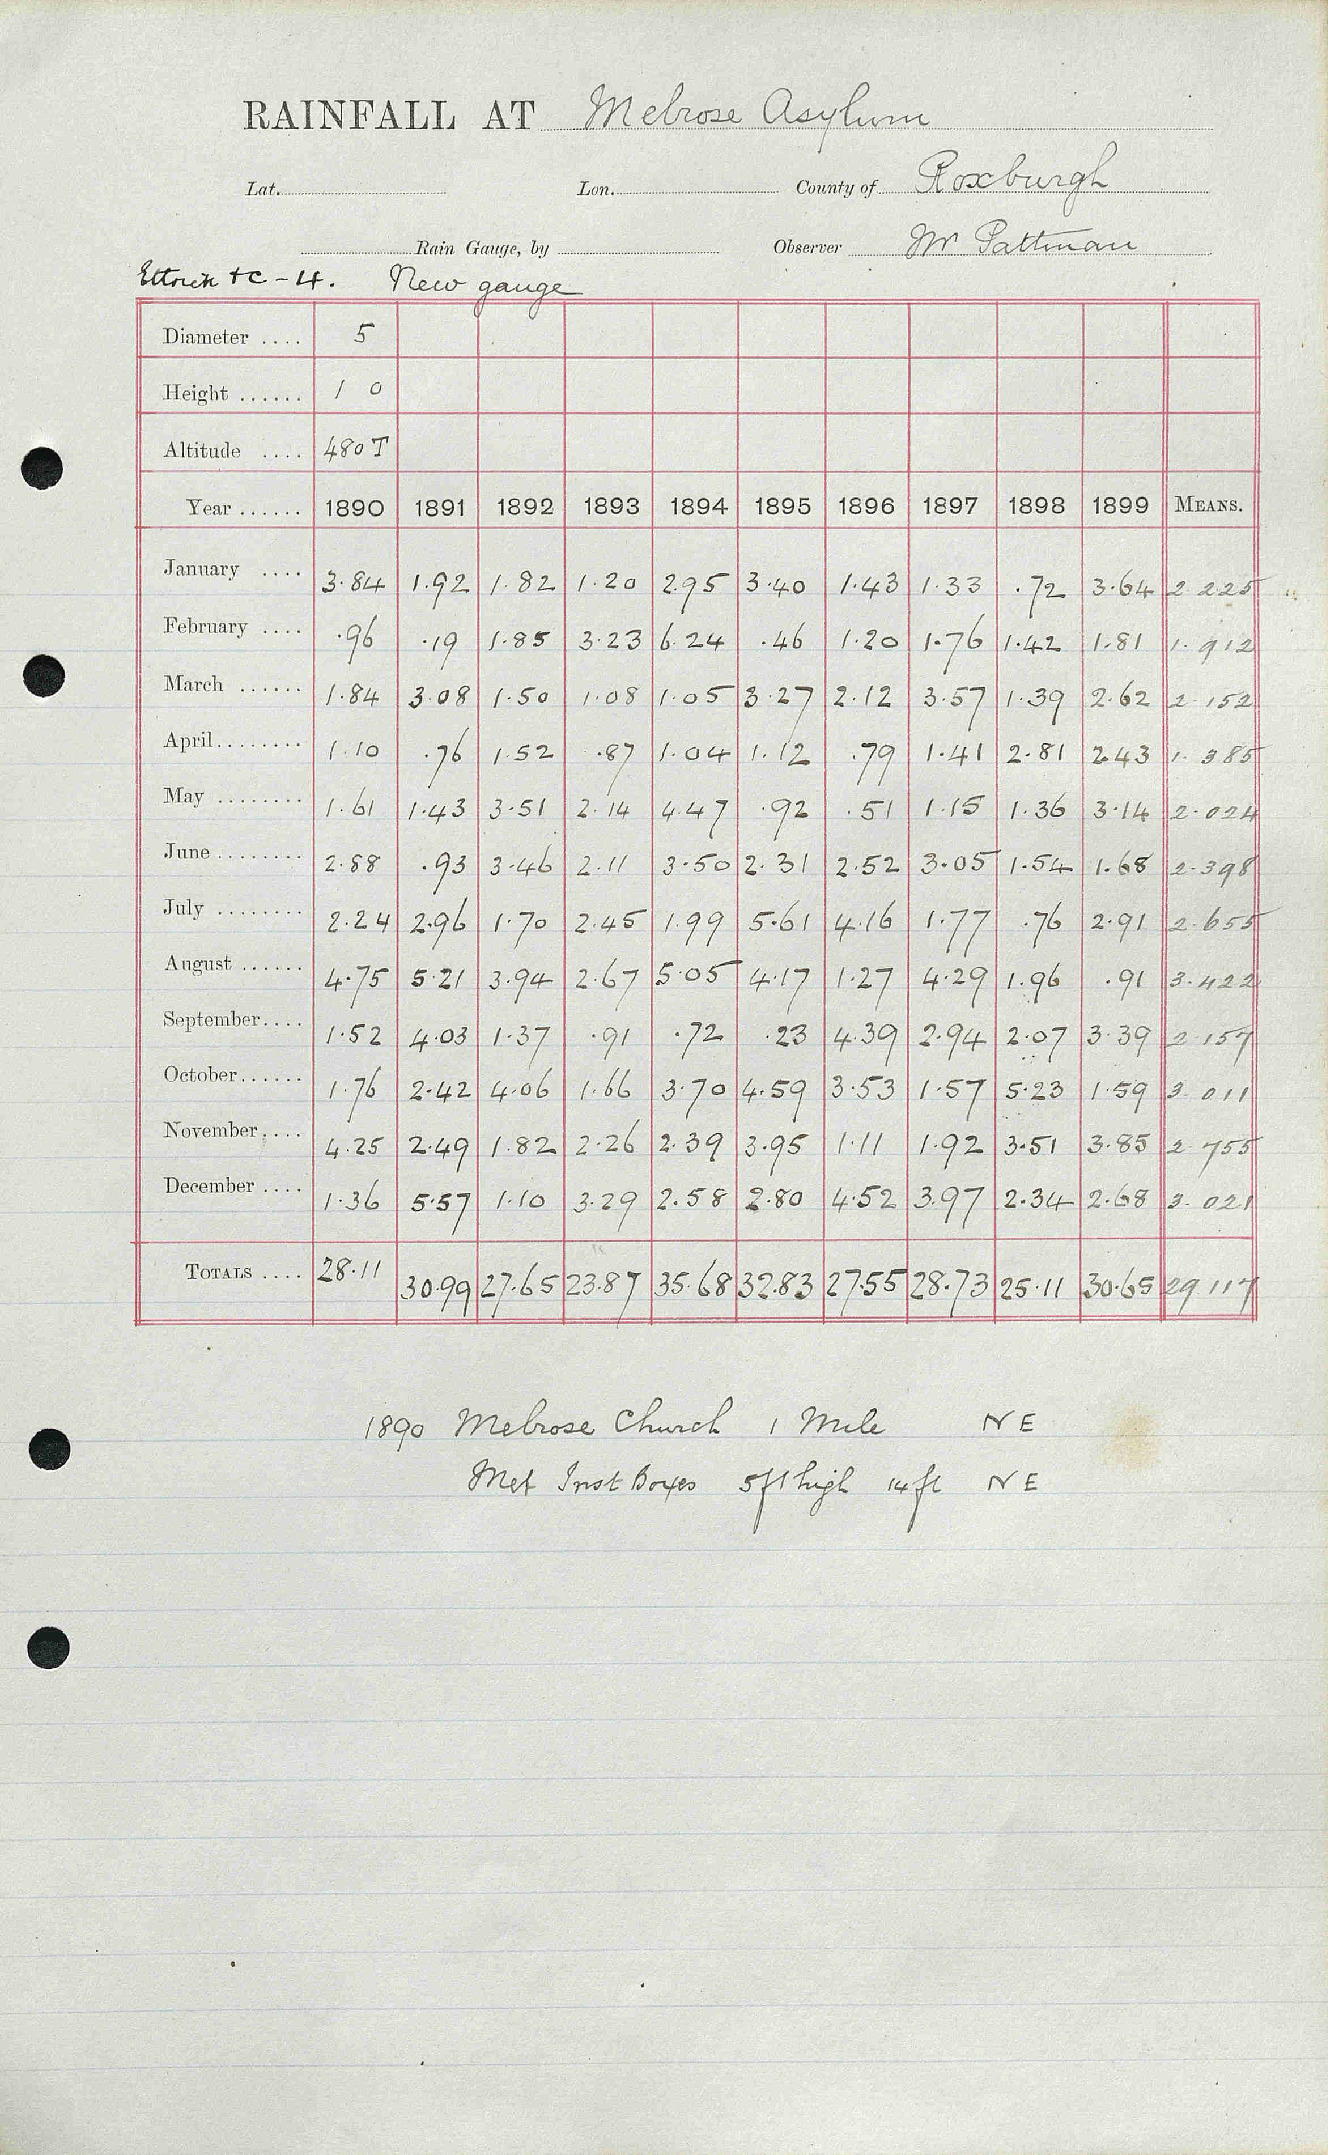 RAINFALL AT Melrose Asylum
Lat. Lon. County of Roxburgh
Rain Gauge, by Observer Mr Pattman
Ettrick &c - 4. New gauge
Diameter .... 5
Height ...... 1 0
Altitude .... 480 T
Year ...... 1890 1891 1892 1893 1894 1895 1896 1897 1898 1899 MEANS.
January .... 3.84 1.92 1.82 1.20 2.95 3.40 1.43 1.33 .72 3.64 2.225
February .... .96 .19 1.85 3.23 6.24 .46 1.20 1.76 1.42 1.81 1.912
March ...... 1.84 3.08 1.50 1.08 1.05 3.27 2.12 3.57 1.39 2.62 2.152
April........ 1.10 .76 1.52 .87 1.04 1.12 .79 1.41 2.81 2.43 1.385
May ........ 1.61 1.43 3.51 2.14 4.47 .92 .51 1.15 1.36 3.14 2.024
June ........ 2.88 .93 3.46 2.11 3.50 2.31 2.52 3.05 1.54 1.68 2.398
July ........ 2.24 2.96 1.70 2.45 1.99 5.61 4.16 1.77 .76 2.91 2.655
August ...... 4.75 5.21 3.94 2.67 5.05 4.17 1.27 4.29 1.96 .91 3.422
September.... 1.52 4.03 1.37 .91 .72 .23 4.39 2.94 2.07 3.39 2.157
October...... 1.76 2.42 4.06 1.66 3.70 4.59 3.53 1.57 5.23 1.59 3.011
November.... 4.25 2.49 1.82 2.26 2.39 3.95 1.11 1.92 3.51 3.85 2.755
December .... 1.36 5.57 1.10 3.29 2.58 2.80 4.52 3.97 2.34 2.68 3.021
TOTALS .... 28.11 30.99 27.65 23.87 35.68 32.83 27.55 28.73 25.11 30.65 29.117
1890 Melrose Church 1 Mile NE
Met Inst Boxes 5ft high 14 ft NE